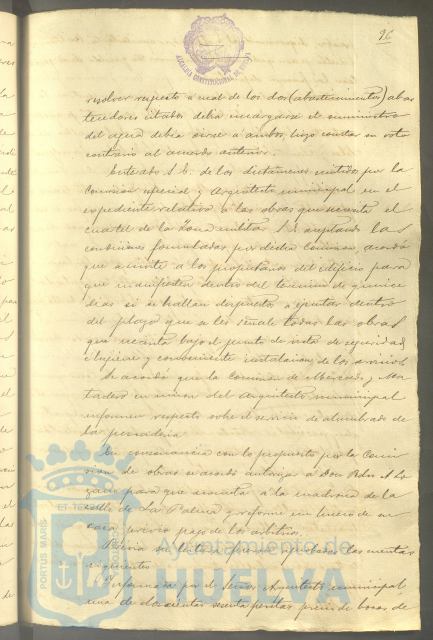 96
ALCALDIA CONSTITUCIONAL DE HUELVA
resolver respecto a cual de los dos (abastecimientos) abas
tecedores citados debia encargarse el suministro
del agua debia oirse a ambos, hizo constar su voto
contrario al acuerdo anterior.
Enterado S. E. de los dictámenes emitidos por la
Comision especial y Arquitecto municipal en el
expediente relativo á las obras que necesita el
cuartel de la Zona militar S. E. aceptando las
condiciones formuladas por dicha Comision, acordó
que se invite a los propietarios del edificio para
que manifiesten dentro del termino de quince
dias si se hallan dispuestos a ejecutar dentro
del plazo que se les señale todas las obras
que necesita bajo el punto de vista de seguridad
é higiene y conveniente instalacion de los servicios
Se acordó que la Comision de Mercado y Ma
tadero en union del Arquitecto municipal
informen respecto sobre el servicio de alumbrado de
la pescaderia
En consonancia con lo propuesto por la Comi
sion de obras se acordó autorizar a Don Pedro A. Lo
zano para que acometa a la madrona de la
calle de La Palma y reforme un hueco de su
casa previo pago de los arbitrios
Previa su lectura fueron aprobadas las cuentas
siguientes
Informada por el Señor Arquitecto municipal,
una de doscientas sesenta pesetas precio de bocas de
PORTUS MARIS ET TE
Ayuntamiento de
HUELVA